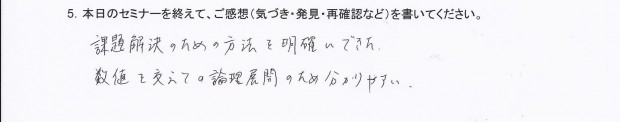 5. 本日のセミナーを終えて、ご感想(気づき・発見・再確認など)を書いてください。
課題解決のための方法を明確にできた.
数値を交えての論理展開のため分かりやすい.